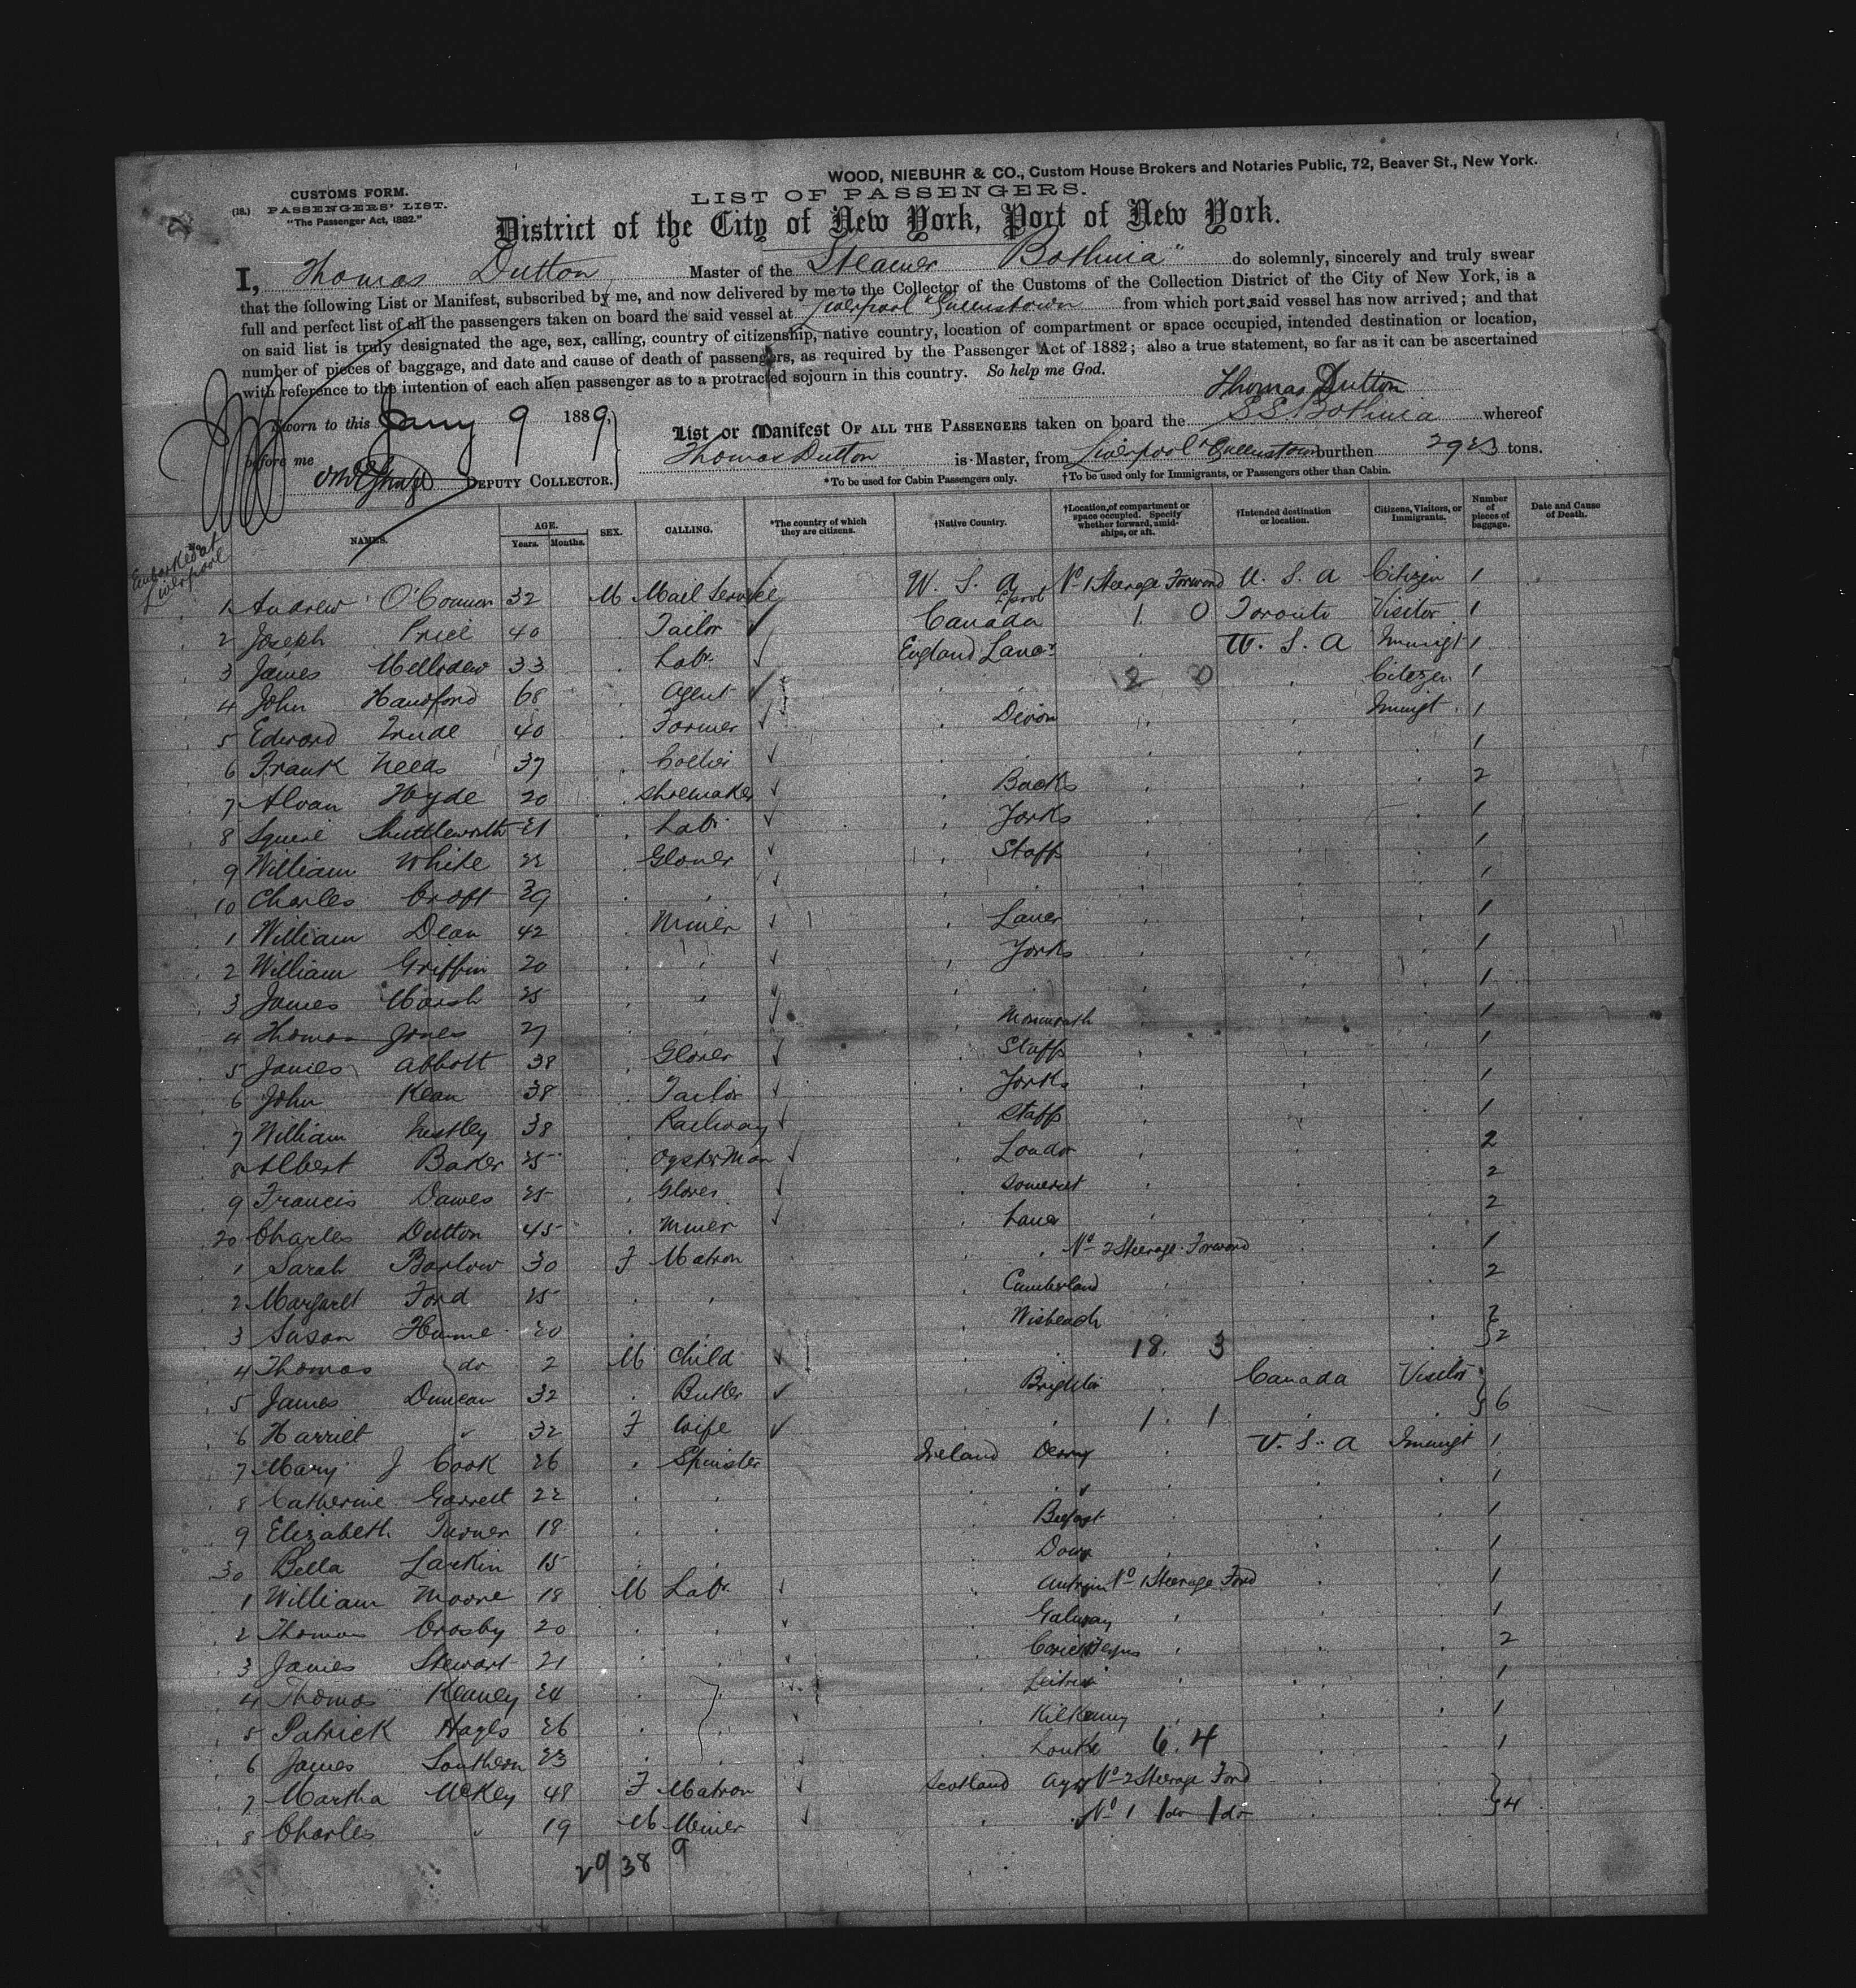 WOOD, NIEBUHR & CO., Custom House Brokers and Notaries Public, 72, Beaver St., New York.
CUSTOMS FORM.
(18.) PASSENGERS' LIST.
"The Passenger Act, 1882."
LIST OF PASSENGERS.
District of the City of New York, Port of New York.
I, Thomas Dutton Master of the Steamer Bothnia" do solemnly, sincerely and truly swear
that the following List or Manifest, subscribed by me, and now delivered by me to the Collector of the Customs of the Collection District of the City of New York, is a
full and perfect list of all the passengers taken on board the said vessel at Liverpool & Queenstown from which port said vessel has now arrived; and that
on said list is truly designated the age, sex, calling, country of citizenship, native country, location of compartment or space occupied, intended destination or location,
number of pieces of baggage, and date and cause of death of passengers, as required by the Passenger Act of 1882; also a true statement, so far as it can be ascertained
with reference to the intention of each alien passenger as to a protracted sojourn in this country. So help me God.
Thomas Dutton
Sworn to this Jany 9 1889,
before me
DEPUTY COLLECTOR.
List or Manifest OF ALL THE PASSENGERS taken on board the S.S. Bothnia whereof
Thomas Dutton is Master, from Liverpool & Queenstown burthen 2923 tons.
*To be used for Cabin Passengers only. †To be used only for Immigrants, or Passengers other than Cabin.
NAMES. AGE. Years. Months. SEX. CALLING. *The country of which they are citizens. †Native Country. †Location of compartment or space occupied. Specify whether forward, amidships, or aft. †Intended destination or location. Citizens, Visitors, or Immigrants. Number of pieces of baggage. Date and Cause of Death.
Embarked at Liverpool
1 Andrew O'Connor 32 M Mail Service U. S. A No 1 Steerage Forward U. S. A Citizen 1
2 Joseph Price 40 Tailor Canada 1 0 Toronto Visitor 1
3 James Mellodew 33 Labr England Lancr U. S. A Immigt 1
4 John Handford 68 Agent 2 0 Citizen 1
5 Edward Trude 40 Farmer Devon Immigt 1
6 Frank Needs 37 Collier 1
7 Alvan Hyde 20 Shoemaker Bucks 2
8 Squire Shuttleworth 21 Labr Yorks 1
9 William White 22 Glover Staffs 1
10 Charles Croft 39 1
1 William Dean 42 Miner Lancr 1
2 William Griffin 20 Yorks 1
3 James Marsh 25 1
4 Thomas Jones 27 Monmouth 1
5 James Abbott 38 Glover Staffs 1
6 John Kean 38 Tailor Yorks 1
7 William 38 Railway Staffs 1
8 Albert Baker 25 Oysterman London 2
9 Francis Dawes 25 Glover Somerset 2
20 Charles Dutton 45 Miner Lancr 2
1 Sarah Barlow 30 F Matron No 2 Steerage Forward 1
2 Margaret Ford 25 Cumberland 2
3 Susan Hume 20 Wisbeach
4 Thomas do 2 M Child 18. 3 2
5 James Duncan 32 Butler Brighton Canada Visitor
6 Harriet " 32 F Wife 1. 1 6
7 Mary J Cook 26 Spinster Ireland Derry U. S. A Immigt 1
8 Catherine Garrett 22 1
9 Elizabeth Turner 18 Belfast 1
30 Bella Larkin 15 Down 1
1 William Moore 18 M Labr Antrim No 1 Steerage Ford 1
2 Thomas Crosby 20 Galway 1
3 James Stewart 21 2
4 Thomas Keaney 24 Leitrim 1
5 Patrick Hayes 26 Kilkenny 1
6 James Southern 23 6. 4 1
7 Martha McKey 48 F Matron Scotland Ayr No 2 Steerage Ford
8 Charles " 19 M Miner No 1 1 do 1 do 4
29 38 9